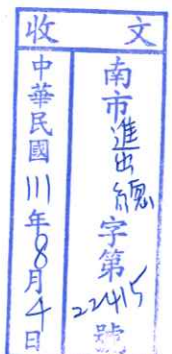 收文
南市進出總字第22415號
中華民國111年8月4日